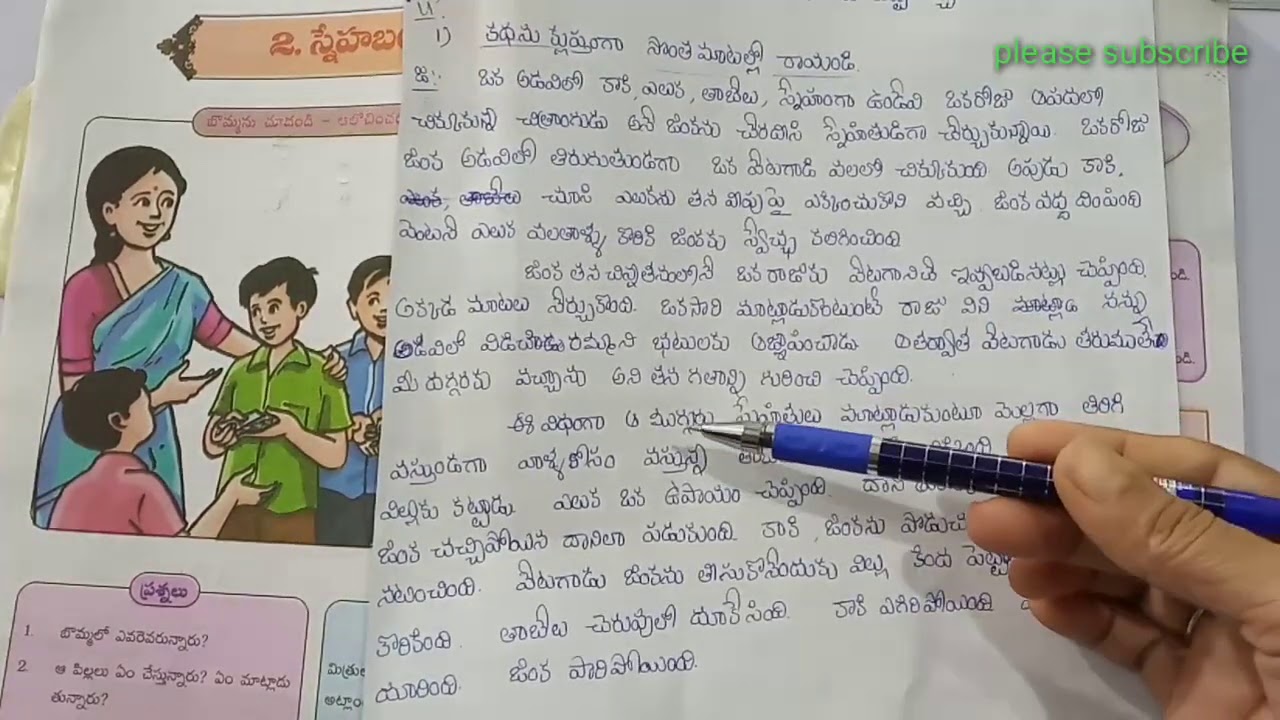 2. స్నేహబం
బొమ్మను చూడండి - ఆలోచించ
ప్రశ్నలు
1. బొమ్మలో ఎవరెవరున్నారు?
2. ఆ పిల్లలు ఏం చేస్తున్నారు? ఏం మాట్లాడు
తున్నారు?
please subscribe
1) కథను క్లుప్తంగా సొంతమాటల్లో రాయండి.
జ: ఒక అడవిలో కాకి, ఎలుక, తాబేలు, స్నేహంగా ఉండేవి ఒకరోజు ఆపదలో
చిక్కుకున్న చిత్రాంగుడు అనే జింకను చేరదీసి స్నేహితుడిగా చేర్చుకున్నాయి. ఒకరోజు
జింక అడవిలో తిరుగుతుండగా ఒక వేటగాడి వలలో చిక్కుకుంది అపుడు కాకి,
చూసి ఎలుకను తన వీపు పై ఎక్కించుకొని వచ్చి జింక వద్ద దింపింది
వెంటనే ఎలుక వలతాళ్ళు కొరికి జింకకు స్వేచ్ఛ కలిగించింది
జింక తన చిన్నతనంలోనే ఒక రాజుకు వేటగానిచే ఇవ్వబడినట్లు చెప్పింది.
అక్కడ మాటలు నేర్చుకొంది. ఒకసారి మాట్లాడుకుంటుంటే రాజు విని నన్ను
అడవిలో విడిచిరమ్మని భటులకు ఆజ్ఞాపించాడు ఆతర్వాత వేటగాడు తరుముతే
మీ దగ్గరకు వచ్చాను అని తన గతాన్ని గురించి చెప్పింది.
ఈ విధంగా ఆ ముగ్గురు స్నేహితులు మాట్లాడుకుంటూ మెల్లగా తిరిగి
వస్తుండగా వాళ్ళకోసం వస్తున్న
విల్లుకు కట్టాడు. ఎలుక ఒక ఉపాయం చెప్పింది. దాని
జింక చచ్చిపోయిన దానిలా పడుకుంది. కాకి, జింకను పొడుచ
నటించింది. వేటగాడు జింకను తీసుకొనేందుకు విల్లు కింద పెట్ట
కొరికింది. తాబేలు చెరువులో దూకేసింది. కాకి ఎగిరిపోయింది
దూరింది. జింక పారిపోయింది.
మిత్రుల
అట్లాం